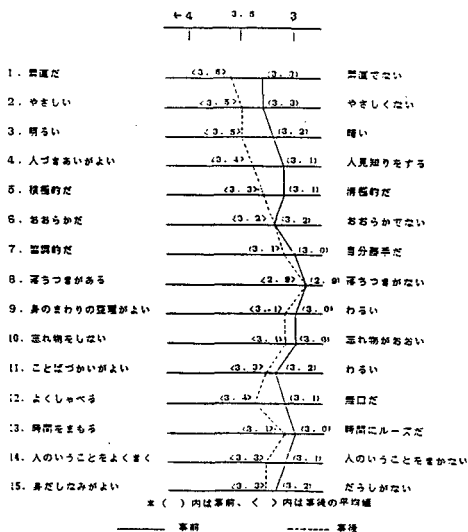 ←4 3.5 3
1. 素直だ <3.6> (3.3) 素直でない
2. やさしい <3.5> (3.3) やさしくない
3. 明るい <3.5> (3.2) 暗い
4. 人づきあいがよい <3.4> (3.1) 人見知りをする
5. 積極的だ <3.3> (3.1) 消極的だ
6. おおらかだ <3.2> (3.2) おおらかでない
7. 協調的だ <3.1> (3.0) 自分勝手だ
8. 落ちつきがある <2.9> (2.9) 落ちつきがない
9. 身のまわりの整理がよい <3.1> (3.0) わるい
10. 忘れ物をしない <3.1> (3.0) 忘れ物がおおい
11. ことばづかいがよい <3.3> (3.2) わるい
12. よくしゃべる <3.4> (3.1) 無口だ
13. 時間をまもる <3.1> (3.0) 時間にルーズだ
14. 人のいうことをよくきく <3.3> (3.1) 人のいうことをきかない
15. 身だしなみがよい <3.3> (3.2) だらしがない
* ( )内は事前、< >内は事後の平均値
事前 事後